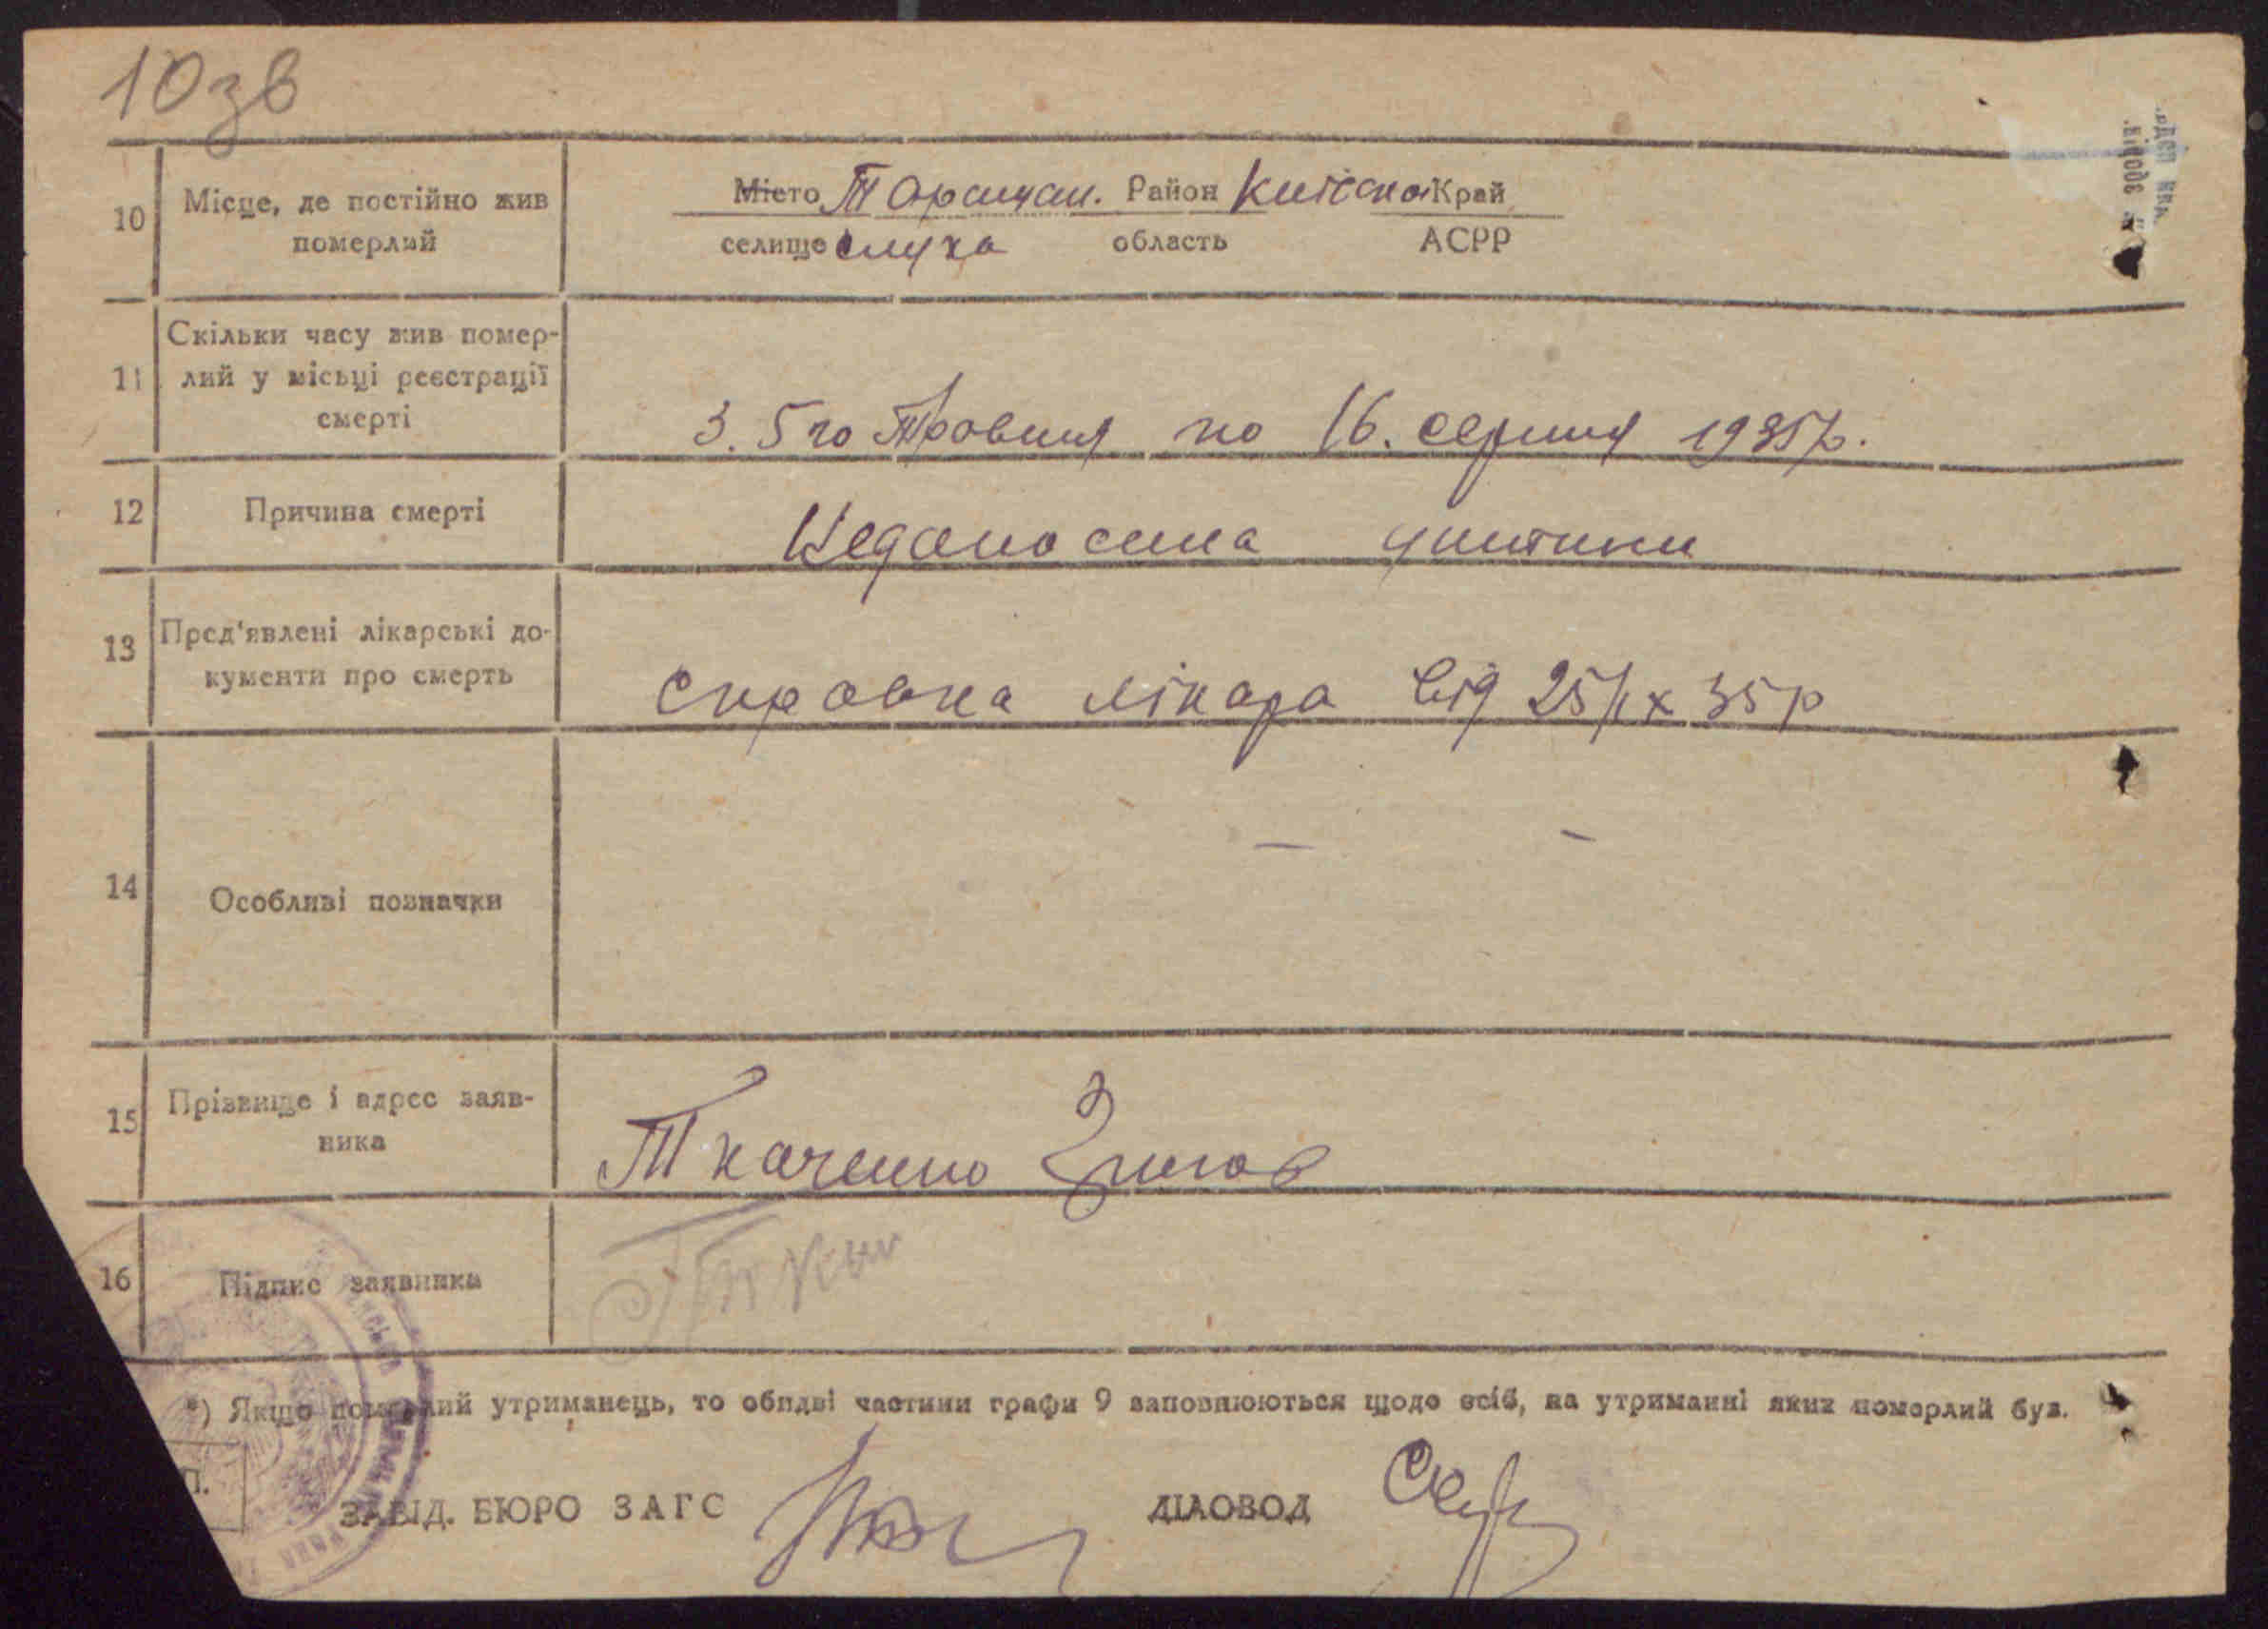 10зв
10 Місце, де постійно жив померлий
Місто Таращан. Район Київська Край
селище Лука область АСРР
11 Скільки часу жив помер-
лий у місьці реєстрації
смерті
З. 5го Травня по 16. серпня 1935р.
12 Причина смерті
Недоносина
13 Пред'явлені лікарські до-
кументи про смерть
Справка лікара від 25/ІХ 35р
14 Особливі позначки
— —
15 Прізвище і адрес заяв-
ника
Ткаченко
16 Підпис заявника
*) Якщо померлий утриманець, то обидві частини графи 9 заповнюються щодо осіб, на утриманні яких померлий був.
П.
ЗАВІД. БЮРО ЗАГС ДІЛОВОД